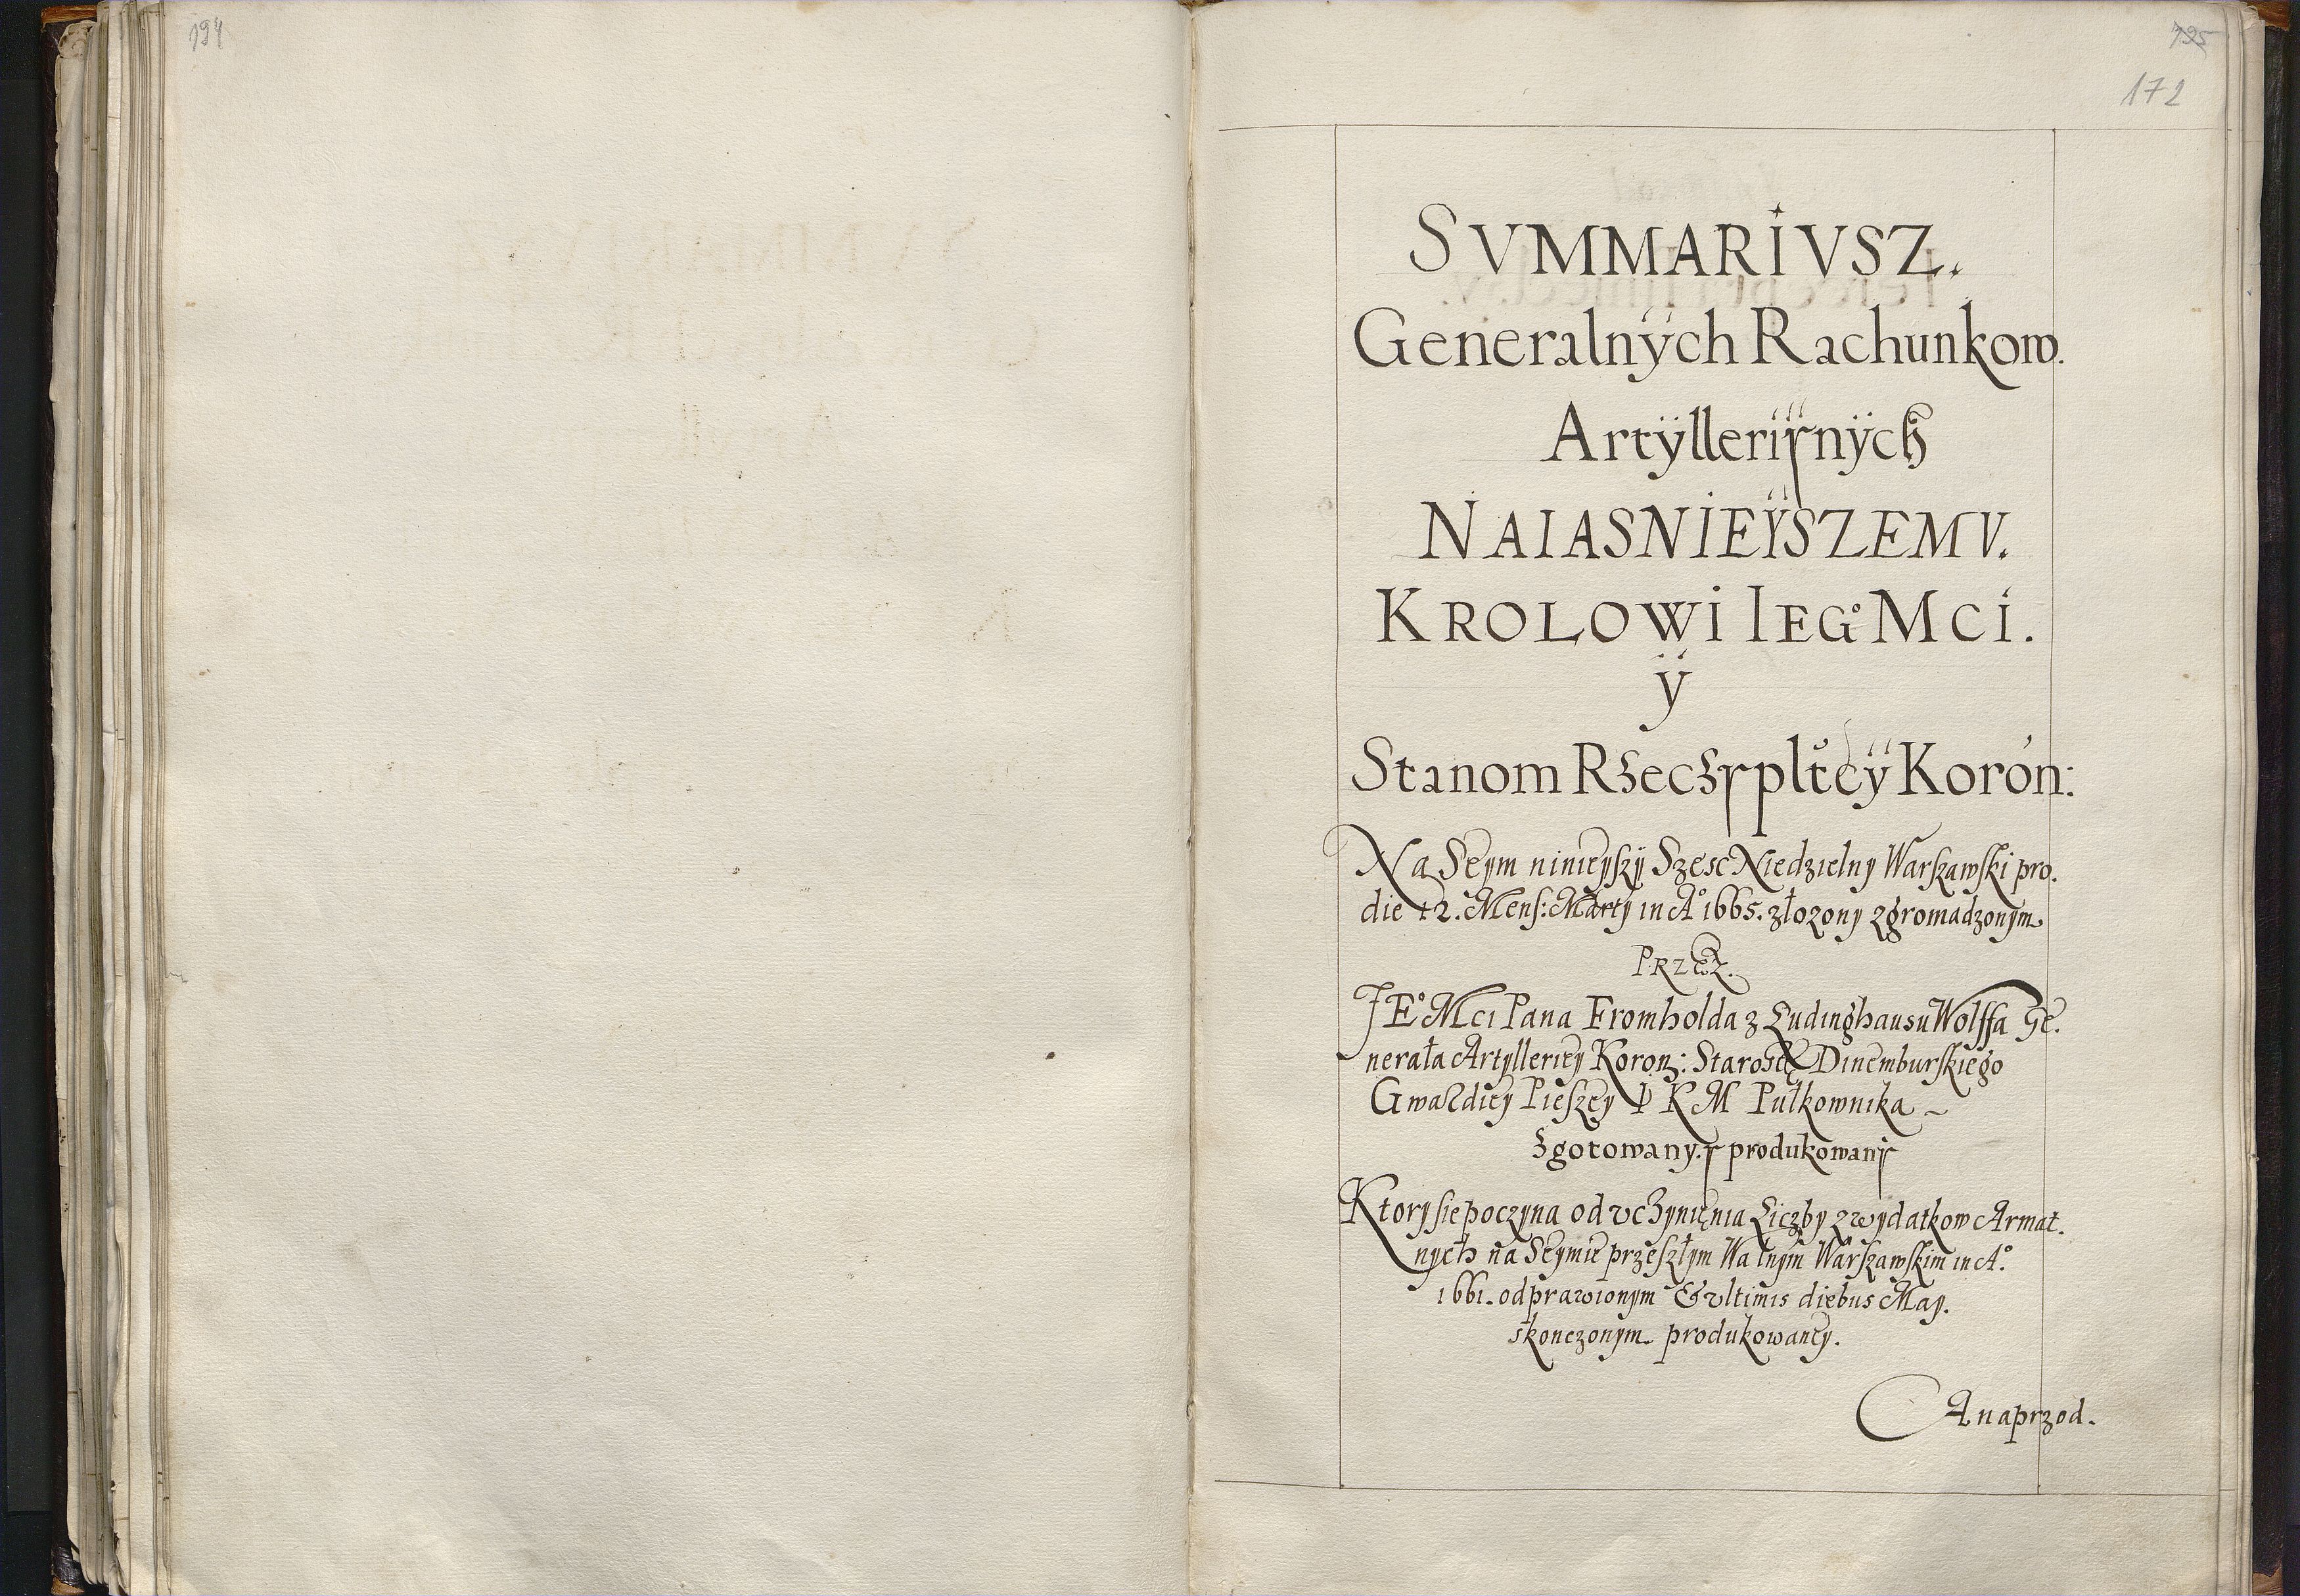 194
195
172
SVMMARIVSZ.
Generalnÿch Rachunkow.
Artÿlleriynÿch
NAIASNIEŸSZEMV.
KROLOWI IEGº MCI.
ÿ
Stanom Rzeczypltcÿ Koron:
Na Seym ninieyszÿ Szesc Niedzielny Warszawski pro.
die 12. Mens: Martÿ in Aº 1665. złozony zgromadzonym
PRZEZ.
JEº Mci Pana Fromholda z Ludinghausu Wolffa Ge.
nerała Artylleriey Koron: Starostę Dinemburskiego
Gwardiey Pieszey J K M Pułkownika ~
Zgotowany. y produkowany
Ktory sie poczyna od vczynięnia Liczby z wydatkow Armat.
nych na Seymie przeszłym Walnym Warszawskim in Aº.
1661. odprawionym & vltimis diebus May.
skonczonym produkowaney.
A naprzod.